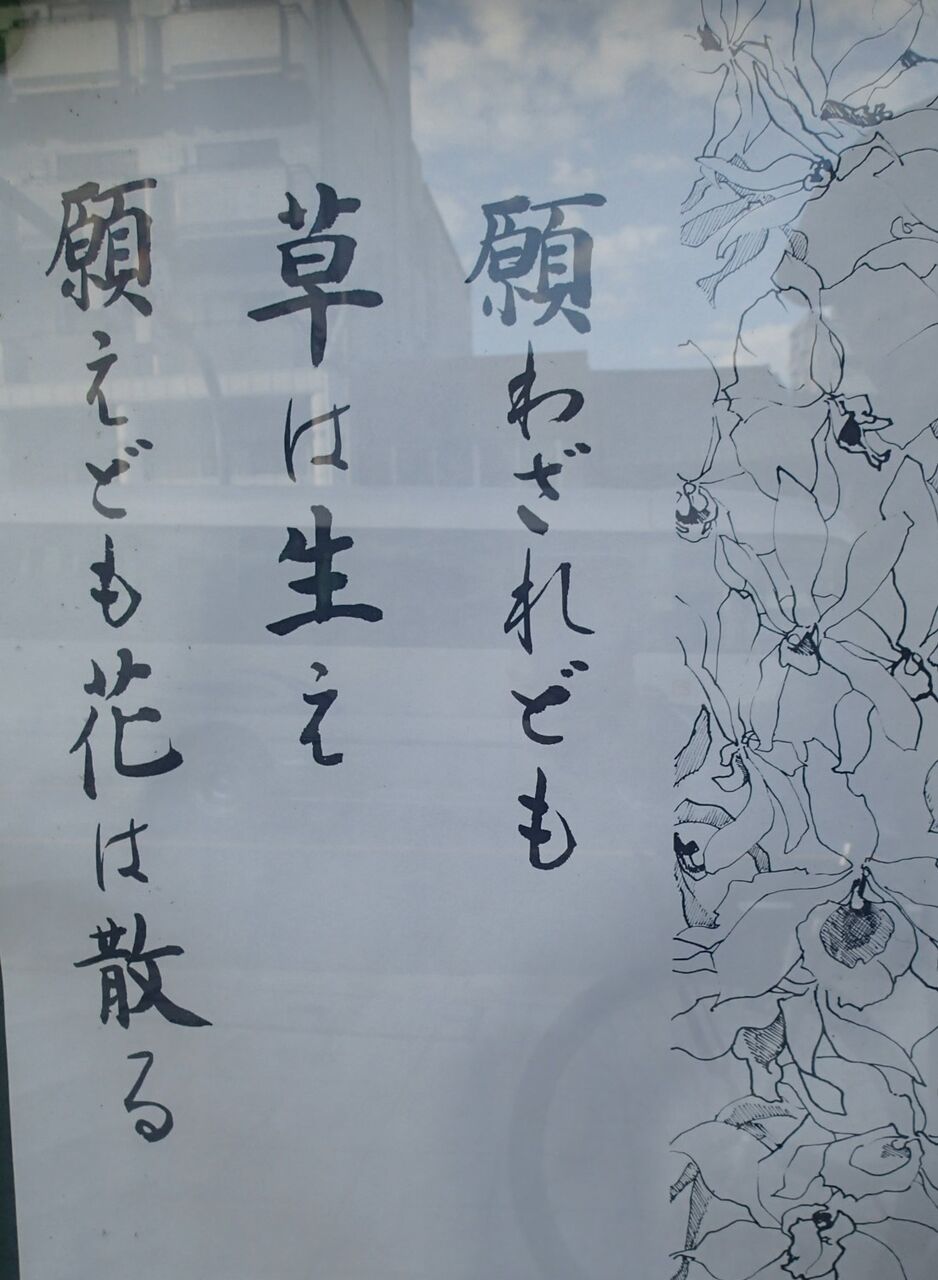 願わざれども
草は生え
願えども花は散る